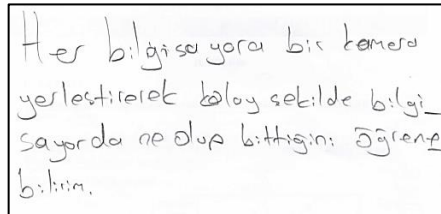 Her bilgisayara bir kamera
yerlestirerek kolay sekilde bilgi_
sayarda ne olup bittigini öğrene
bilirim.